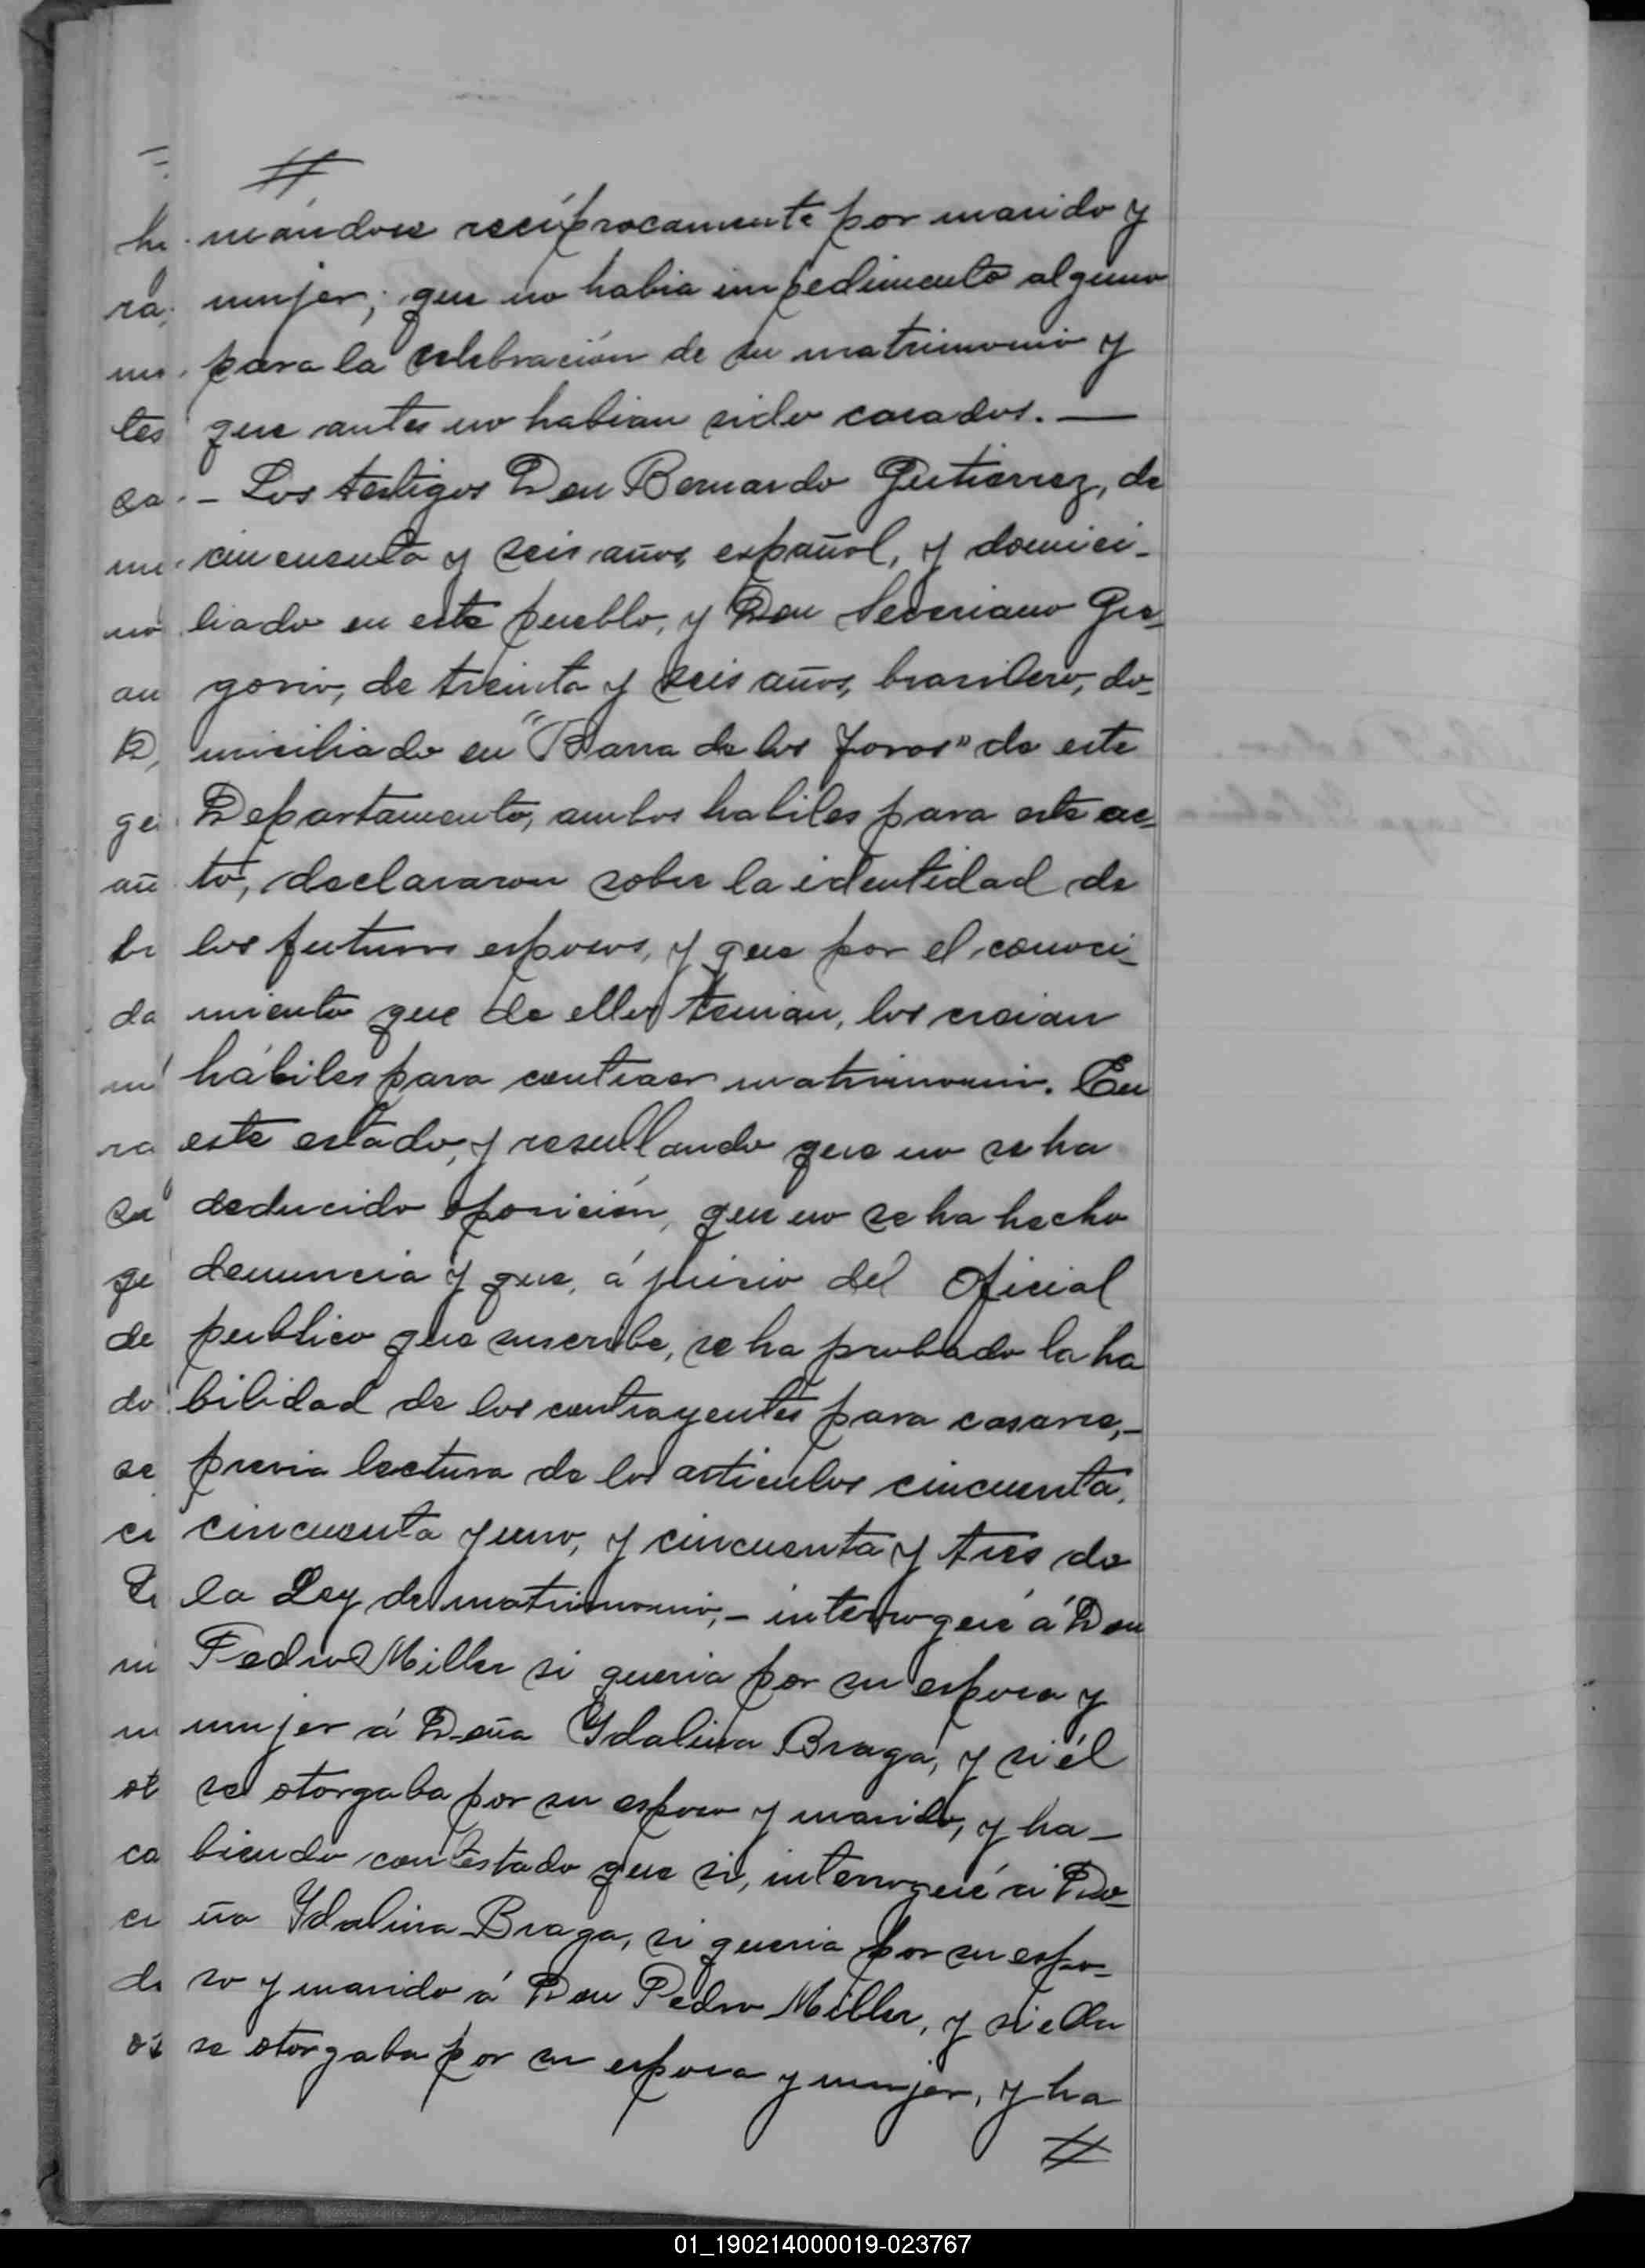 #
mándose recíprocamente por marido y
mujer; que no habia impedimento alguno
para la celebración de su matrimonio y
que antes no habian sido casados. —
— Los testigos Don Bernardo Gutierrez, de
cincuenta y seis años, español, y domici-
liado en este pueblo, y Don Severiano Gre-
gorio, de treinta y seis años, brasilero, do-
miciliado en "Barra de los Toros" de este
Departamento, ambos habiles para este ac-
to, declararon sobre la identidad de
los futuros esposos, y que por el conoci-
miento que de ellos tenian, los creian
hábiles para contraer matrimonio. En
este estado, y resultando que no se ha
deducido oposición, que no se ha hecho
denuncia y que, á juicio del Oficial
publico que suscribe, se ha probado la ha
bilidad de los contrayentes para casarse,-
previa lectura de los articulos cincuenta,
cincuenta y uno, y cincuenta y tres de
la Ley de matrimonio,- interrogué á Don
Pedro Miller si queria por su esposa y
mujer á Doña Ydalina Braga, y si él
se otorgaba por su esposo y marido, y ha-
biendo contestado que si, interrogué á Do-
ña Ydalina Braga, si queria por su espo-
so y marido á Don Pedro Miller, y si ella
se otorgaba por su esposa y mujer, y ha
#
01_190214000019-023767